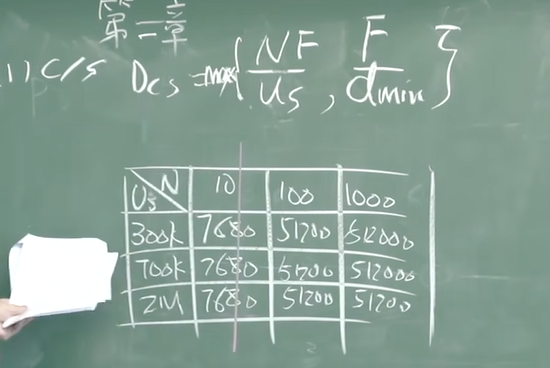 第二章
(1) C/S Dcs = max{NF/Us, F/dmin}
Us N 10 100 1000
300k 7680 51200 512000
700k 7680 51200 512000
2M 7680 51200 51200